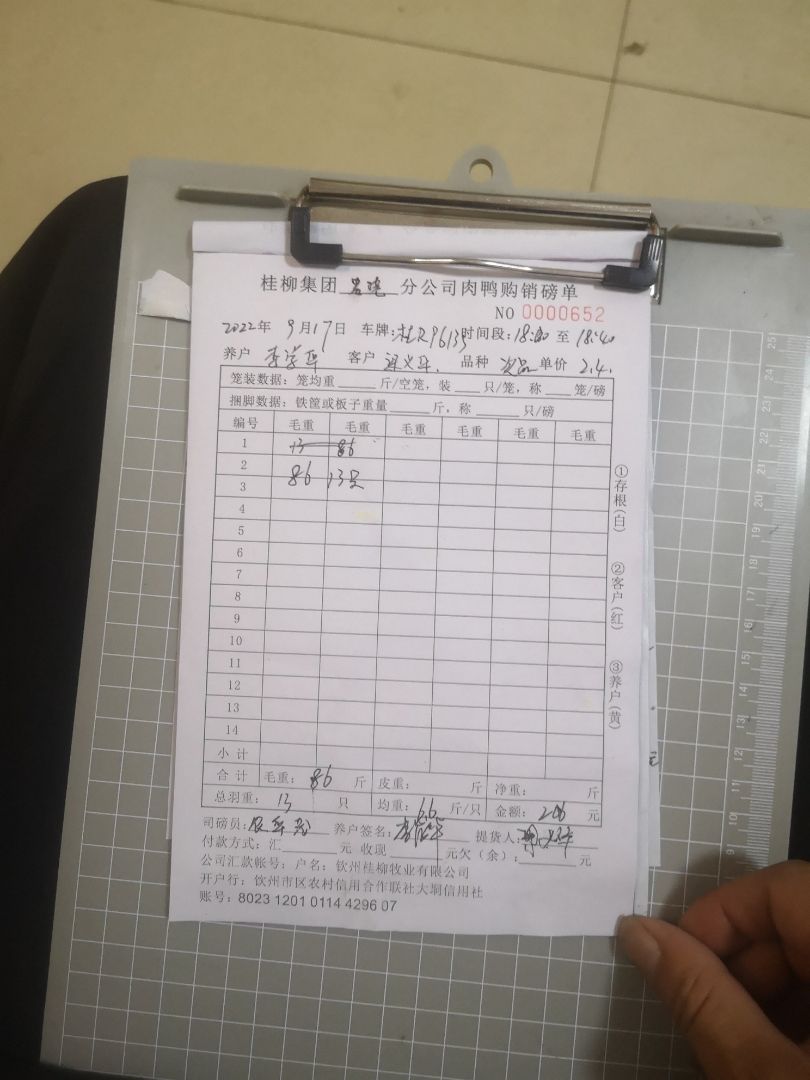 桂柳集团 分公司肉鸭购销磅单
NO 0000652
2022年 9月17日 车牌: 时间段:18:00 至 18:40
养户 李荣华 客户 品种 次品 单价 2.4.
笼装数据:笼均重 斤/空笼,装 只/笼,称 笼/磅
捆脚数据:铁筐或板子重量 斤,称 只/磅
编号 毛重 毛重 毛重 毛重 毛重 毛重
1 13 86
2
3 86 13只
4
5
6
7
8
9
10
11
12
13
14
小 计
合 计 毛重: 86 斤 皮重: 斤 净重: 斤
总羽重: 13 只 均重: 6.6 斤/只 金额: 206 元
司磅员: 养户签名: 提货人:
付款方式:汇 元 收现 元欠(余): 元
公司汇款帐号:户名:钦州桂柳牧业有限公司
开户行:钦州市区农村信用合作联社大垌信用社
账号:8023 1201 0114 4296 07
①存根(白)
②客户(红)
③养户(黄)